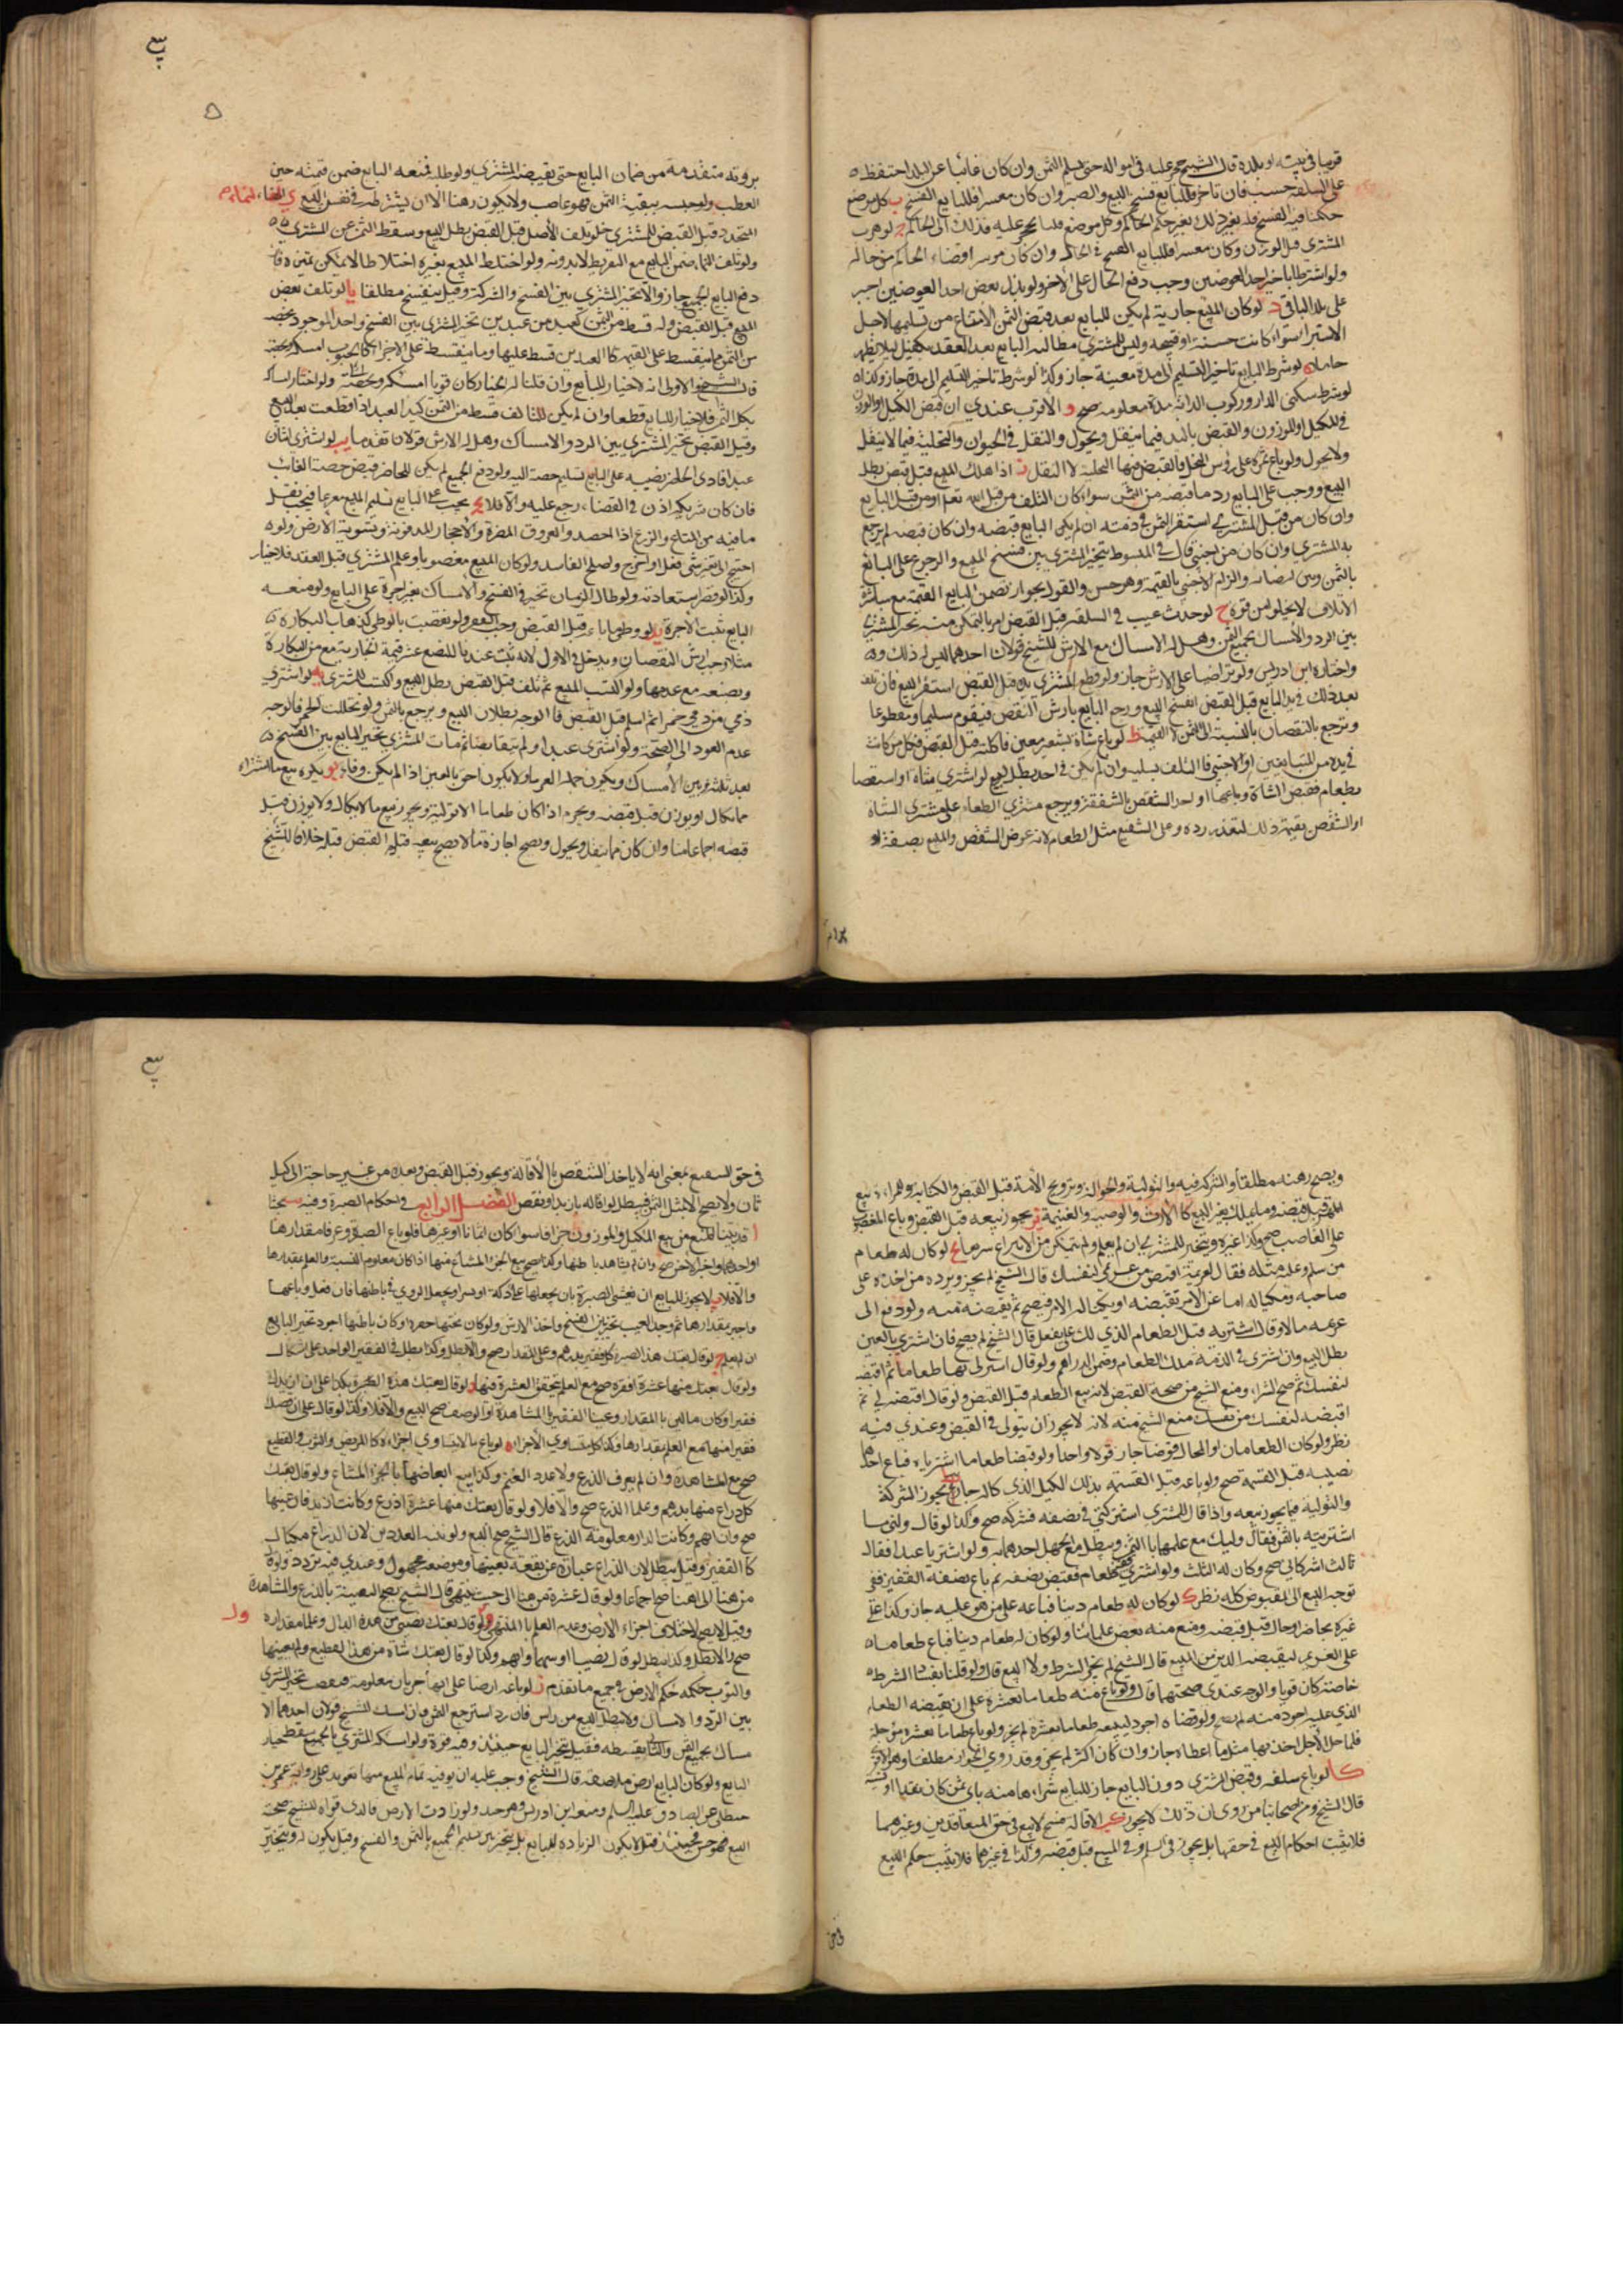 قريبا في بيته او بلده قال الشيخ حجر عليه في امواله حتى يسلم الثمن وان كان غائبا عن البلد احتفظ
على السلعة حسب فان تاخر فللبايع فسخ البيع والصبر وان كان معسرا فللبايع الفسخ ب كل موضع
حكمنا فيه بالفسخ فله بغير حكم الحاكم وكل موضع قلنا يحجر عليه فذلك الى الحاكم ج لو هرب
المشتري قبل الوزن وكان معسرا فللبايع الفسخ في الحال وان كان موسرا قضاه الحاكم من ماله
ولو اشترطا تاخير احد العوضين وجب دفع الحال على الاخر ولو بذل بعض احد العوضين اجبر
على بذل الباقي د لو كان المبيع جارية لم يكن للبايع بعد قبض الثمن الامتناع من تسليمها لاجل
الاستبراء سواء كانت حسنة او قبيحة وليس للمشتري مطالبة البايع بعد العقد بكفيل ليلا يظهر
حاملا ه لو شرط البايع تاخير التسليم الى مدة معينة جاز وكذا لو شرط تاخير التسليم الى مدة جاز وكذا
لو شرط سكنى الدار وركوب الدابة مدة معلومة صح و الاقرب عندي ان قبض الكيل او الوزن
في المكيل والموزون والقبض باليد فيما ينقل ويحول والنقل في الحيوان والتخلية فيما لا ينقل
ولا يحول ولو باع ثمرة على رؤس النخل فالقبض فيها التخلية لا النقل ز اذا هلك المبيع قبل قبضه بطل
البيع ووجب على البايع رد ما قبضه من الثمن سواء كان التلف من قبل الله تعالى او من قبل البايع
وان كان من قبل المشتري استقر الثمن في ذمته ان لم يكن البايع قبضه وان كان قبضه لم يرجع
به المشتري وان كان من اجنبي قال في المبسوط يتخير المشتري بين فسخ المبيع والرجوع على البايع
بالثمن وبين امضائه والزام الاجنبي بالقيمة وهو حسن والقول بجواز تضمين البايع القيمة مع مباشرة
الاتلاف لا يخلو من قوة ح لو حدث عيب في السلعة قبل القبض او بالتمكن منه تخير المشتري
بين الرد والامساك بجميع الثمن وهل له الامساك مع الارش للشيخ قولان احدهما ليس له ذلك
واختاره ابن ادريس ولو تراضيا على الارش جاز ولو قطع المشتري يده قبل القبض استقر البيع فان تلف
بعد ذلك في يد البايع قبل القبض انفسخ البيع ورجع البايع بارش النقص فيقوم سليما ومقطوعا
ويرجع بالنقصان بالنسبة الى الثمن لا القيمة ط لو باع شاة بشعير معين فاكلته قبل القبض فان كانت
في يده من المتبايعين او الاجنبي فالتلف بسببه وان لم يكن في احد بطل البيع لو اشترى شاة او شقصا
بطعام فقبض الشاة وباعها او اخذ الشقص بالشفعة ويرجع مشتري الطعام على مشتري الشاة
او الشقص بقيمة ذلك لتعذر رده وعلى الشفيع مثل الطعام لانه عوض الشقص والمبيع بصفة او
بيع
بروية متقدمة من ضمان البايع حتى يقبضه المشتري ولو طلبه فمنعه البايع ضمن قيمته حين
العطب ولو حبسه ببقية الثمن فهو غاصب ولا يكون رهنا الا ان يشترطه في نفس البيع ي النماء
المتجدد قبل القبض للمشتري فلو تلف الاصل قبل القبض بطل البيع وسقط الثمن عن المشتري
ولو تلف النماء ضمن البايع مع التفريط لا بدونه ولو اختلط المبيع بغيره اختلاطا لا يمكن تميزه فان
دفع البايع الجميع جاز والا تخير المشتري بين الفسخ والشركة وقيل ينفسخ مطلقا يا لو تلف بعض
المبيع قبل القبض وله قسط من الثمن كعبد من عبدين تخير المشتري بين الفسخ واخذ الموجود بحصته
من الثمن مما يتقسط على القيمة كالعبدين قسط عليهما وما يتقسط على الاجزاء كالحبوب امسكه بحصته
قال الشيخ والاولى انه لا خيار للبايع وان قلنا له الخيار كان قويا امسكه وبحصته ولو اختار امساكه
بكل الثمن فلا خيار للبايع قطعا وان لم يكن للتالف قسط من الثمن كيد العبد اذا قطعت بعد البيع
وقبل القبض تخير المشتري بين الرد والامساك وهل له الارش قولان تقدما يب لو اشترى اثنان
عبدا فادى الحاضر نصيبه على البايع تسليم حصته اليه ولو دفع الجميع لم يكن للحاضر قبض حصة الغائب
فان كان شريكه اذن في القضاء رجع عليه والا فلا يج يجب على البايع تسليم المبيع مفرغا فيجب نقل
ما فيه من المتاع والزرع اذا احصد والعروق المضرة والاحجار المدفونة وتسوية الارض ولو
احتيج الى تغيير شيء فعل او اخرج ولصلح الفاسد ولو كان المبيع مغصوبا وعلم المشتري قبل العقد فلا خيار
وكذا لو قصر استعادته ولو طال الزمان تخير في الفسخ والامساك بغير اجرة على البايع ولو منعه
البايع ثبت الاجرة يد لو وطئها بايع قبل القبض وجب العقر ولو نقصت بالوطي كذهاب البكارة
مثلا وجب ارش النقصان ويدخل في الاول لانه ثبت عندنا للبضع عشر قيمة الجارية مع من البكارة
ونصفه مع عدمها ولو اكتسب المبيع ثم تلف قبل القبض بطل البيع والكسب للمشتري يه لو اشترى
ذمي من ذمي خمرا ثم اسلم قبل القبض فالوجه بطلان البيع ويرجع بالثمن ولو تخللت الخمر فالوجه
عدم العود الى الصحة ولو اشترى عبدا ولم يتقابضا ثم مات المشتري تخير البايع بين الفسخ
بعد ثلثة وبين الامساك ويكون كاحد الغرماء ولا يكون احق بالعين اذا لم يكن وفاء يو يكره بيع ما اشتراه
مما يكال او يوزن قبل قبضه ويحرم اذا كان طعاما الا تولية ويجوز بيع ما لا يكال ولا يوزن قبل
قبضه اجماعا منا وان كان مما ينقل ويحول ويصح اجارة ما لا يصح بيعه قبل القبض قبله خلافا للشيخ
ويصح رهنه مطلقا والشركة فيه والتولية والحوالة وتزويج الامة قبل القبض والكتابة
قبل قبضه وما يملك بغير البيع كالارث والوصية والغنيمة يز يجوز بيعه قبل القبض ولو باع المغصوب
على الغاصب صح وكذا غيره ويتخير المشتري ان لم يعلم ولم يتمكن من الانتزاع سريعا يح لو كان له طعام
من سلم وعليه مثله فقال لغريمه اقبض من غريمي لنفسك قال الشيخ لم يجز ويرده من اخذه على
صاحبه ويكتاله اما عن الامر بقبضه او يكتاله الامر فيصح ثم يقبضه منه ولو دفع الى
غريمه مالا وقال اشتر به قبل الطعام الذي لك علي ففعل قال الشيخ لم يصح فان اشترى بالعين
بطل البيع وان اشترى في الذمة ملك الطعام وضمن الدراهم ولو قال اشتر لي بها طعاما ثم اقبضه
لنفسك صح الشراء ومنع الشيخ من صحة القبض لانه بيع الطعام قبل القبض ولو قال اقبضه لي ثم
اقبضه لنفسك من نفسك منع الشيخ منه لانه لا يجوز ان يتولى في القبض وعندي فيه
نظر ولو كان الطعامان او المحال قرضا جاز قولا واحدا ولو قبضا طعاما اشترياه فباع احدهما
نصيبه قبل القسمة صح ولو باعه قبل القسمة بذلك الكيل الذي كاله جاز يط يجوز الشركة
والتولية فيما يجوز بيعه واذا قال المشتري اشتركني في نصفه فشركه صح وكذا لو قال ولني ما
اشتريته بالثمن فقال وليتك مع علمهما بالثمن ويبطل مع الجهل احدهما ولو اشتريا عبدا فقال
ثالث اشركاني صح وكان له الثلث ولو اشترى قفيز طعام فقبض نصفه ثم باع نصف القفيز ففي
توجه البيع الى المقبوض كله نظر ك لو كان له طعام دينا فباعه على من هو عليه جاز وكذا على
غيره بحاضر او حال قبل قبضه ومنع منه بعض علمائنا ولو كان له طعام دينا فباع طعاما
على الغريم ليقبضه الدين من المبيع قال الشيخ لم يجز الشرط ولا البيع قال ولو قلنا بفساد الشرط
خاصة كان قويا والوجه عندي صحتهما قال ولو باع منه طعاما بعشرة على ان يقبضه الطعام
الذي عليه اجود منه لم يصح ولو قضاه اجود ليبيعه طعاما بعشرة لم يجز ولو باع طعاما بعشرة مؤجلة
فلما حل الاجل اخذ بها مثل ما اعطاه جاز وان كان اكثر لم يجز وقد روي الجواز مطلقا وهو الاقرب
كا لو باع سلعة وقبض المشتري دون البايع جاز للبايع شراءها منه باي ثمن كان نقدا او نسية
قال الشيخ ومن اصحابنا من روى ان ذلك لا يجوز كب الاقالة فسخ لا بيع في حق المتعاقدين وغيرهما
فلا يثبت احكام البيع في حقهما بل يجوز في السلم وفي المبيع قبل قبضه وكذا في غيرهما فلا يثبت حكم البيع
بيع
في حق الشفيع بمعنى انه لا ياخذ الشقص بالاقالة ويجوز قبل القبض وبعده من غير حاجة الى كيل
ثان ولا يصح الا بمثل الثمن فيبطل لو اقاله بازيد او نقص الفصل الرابع في احكام الصبرة وفيه بحثا
ا قد بينا المنع من بيع المكيل والموزون جزافا سواء كان اثمانا او غيرها فلو باع الصبرة وعرفا مقدارها
او احدهما واخبر الاخر صح وان لم يشاهد باطنها وكذا يصح بيع الجزء المشاع منها اذا كان معلوم النسبة والعلم بقدارها
والا فلا ب لا يجوز للبايع ان يغش الصبرة بان يجعلها على دكة او يجعل الردي في باطنها فان فعل وباعها
واخبر بمقدارها ثم وجد العيب تخير بين الفسخ واخذ الارش ولو كان تحتها حفرة او كان باطنها اجود تخير البايع
ان لم يعلم ج لو قال بعتك هذه الصبرة كل قفيز بدرهم وعلما المقدار صح والا بطل وكذا يبطل في القفيز الواحد على اشكال
ولو قال بعتك منها عشرة اقفزة صح مع العلم بتحقق العشرة فيها د لو قال بعتك هذه الصبرة بكذا على ان ازيدك
قفيزا وكان عالمين بالمقدار وعينا القفيز بالمشاهدة او الوصف صح البيع والا فلا وكذا لو قال على ان انقصك
قفيزا منها مع العلم بقدارها وكذا كل متساوي الاجزاء ه لو باع ما لا يتساوى اجزاءه كالارض والثوب والقطيع
صح مع المشاهدة وان لم يعرف الذرع ولا عدد الغنم وكذا بيع ابعاضها بالجزء المشاع ولو قال بعتك
كل ذراع منها بدرهم وعلما الذرع صح والا فلا ولو قال بعتك منها عشرة اذرع وكانت فان عينها
صح وان ابهم وكانت الدار معلومة الذرع قال الشيخ صح البيع لان الذراع مكيال
كالقفيز وقيل يبطل لان الذراع عبارة عن بقعة بعينها وموضعه مجهول وعندي فيه تردد ولو قال
من هنا الى هنا صح اجماعا ولو قال عشرة من هنا الى حيث ينتهي قال الشيخ يصح لتعينه بالذرع والمشاهدة
وقيل لا يصح لاختلاف اجزاء الارض وعدم العلم بالمنتهى و لو قال بعتك نصيبي من هذه الدار وعلما مقداره
صح والا بطل وكذا يبطل لو قال نصيبا او سهما وابهم وكذا لو قال بعتك شاة من هذا القطيع ولم يعينها
والثوب حكمه حكم الارض في جميع ما تقدم ز لو باعه ارضا على انها جربان معلومة فنقصت تخير المشتري
بين الرد والامساك ولا يبطل البيع من راس فان رد استرجع الثمن وان امسك للشيخ قولان احدهما الا
مساك بجميع الثمن والثاني بقسطه فقيل يتخير البايع حينئذ وفيه قوة ولو امسكه المشتري بالجميع سقط خيار
البايع ولو كان للبايع ارض ملاصقة قال الشيخ وجب عليه ان يوفيه تمام المبيع منها تعويلا على رواية عمر بن
حنظلة عن الصادق عليه السلم ومنعه ابن ادريس وهو جيد ولو زادت الارض فالذي قواه الشيخ صحة
البيع فهو حسن فحينئذ قيل لا يكون الزيادة للبايع بل يتخير بين تسليم الجميع بالثمن والفسخ وقيل يكون له ويتخير